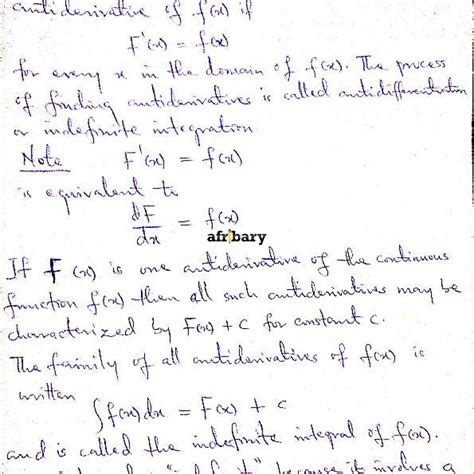 antiderivative of f(x) if
F'(x) = f(x)
for every x in the domain of f(x). The process
of finding antiderivatives is called antidifferentiation
or indefinite integration.
Note F'(x) = f(x)
is equivalent to
dF/dx = f(x)
afribary
If F(x) is one antiderivative of the continuous
function f(x) then all such antiderivatives may be
characterized by F(x) + c for constant c.
The family of all antiderivatives of f(x) is
written
∫f(x)dx = F(x) + c
and is called the indefinite integral of f(x).
because it involves a